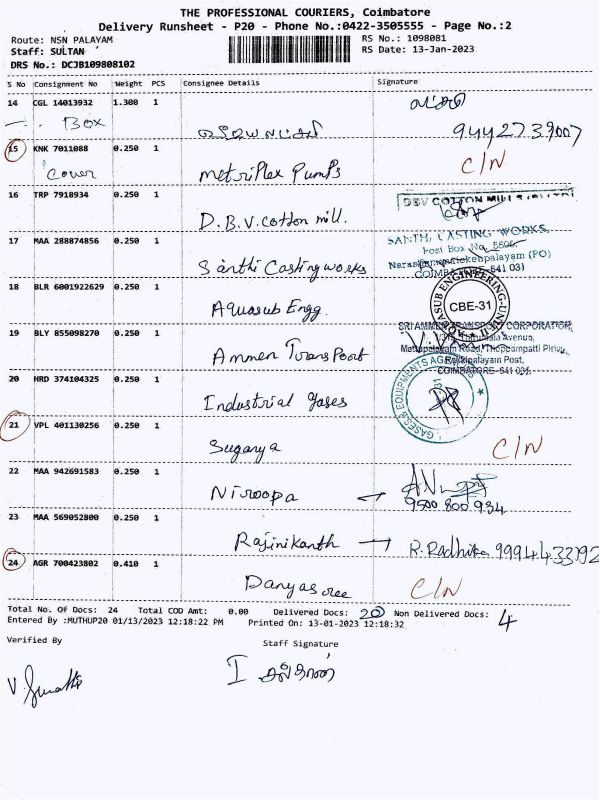 THE PROFESSIONAL COURIERS, Coimbatore
Delivery Runsheet - P20 - Phone No.:0422-3505555 - Page No.:2
Route: NSN PALAYAM
RS No.: 1098081
Staff: SULTAN
RS Date: 13-Jan-2023
DRS No.: DCJB109808102
S No Consignment No Weight PCS Consignee Details Signature
14 CGL 14013932 1.300 1
Box
9442739007
15 KNK 7011088 0.250 1
Cover Metriplex Pumps C/N
16 TRP 7918934 0.250 1
D.B.V. Cotton mill.
DBV COTTON MILLS
17 MAA 288874856 0.250 1
Santhi Casting works
SANTHI CASTING WORKS,
Post Box No.
COIMBATORE-641 031
18 BLR 6001922629 0.250 1
Aquasub Engg.
AQUASUB ENGINEERING-UNIT
CBE-31
19 BLY 855098270 0.250 1
Ammen Transport
SRI AMMEN TRANSPORT CORPORATION,
Mettupalayam Road, Thoppampatti Pirivu,
Rakkipalayam Post,
COIMBATORE-641 031.
20 HRD 374104325 0.250 1
Industrial gases
GASES & EQUIPMENTS
21 VPL 401130256 0.250 1
Suganya C/N
22 MAA 942691583 0.250 1
Niroopa →
9500 800 934
23 MAA 569052800 0.250 1
Rajinikanth → R. Radhika 9994433192
24 AGR 700423802 0.410 1
Danyasree C/N
Total No. Of Docs: 24 Total COD Amt: 0.00 Delivered Docs: 20 Non Delivered Docs: 4
Entered By :MUTHUP20 01/13/2023 12:18:22 PM Printed On: 13-01-2023 12:18:32
Verified By
Staff Signature
I சுல்தான்